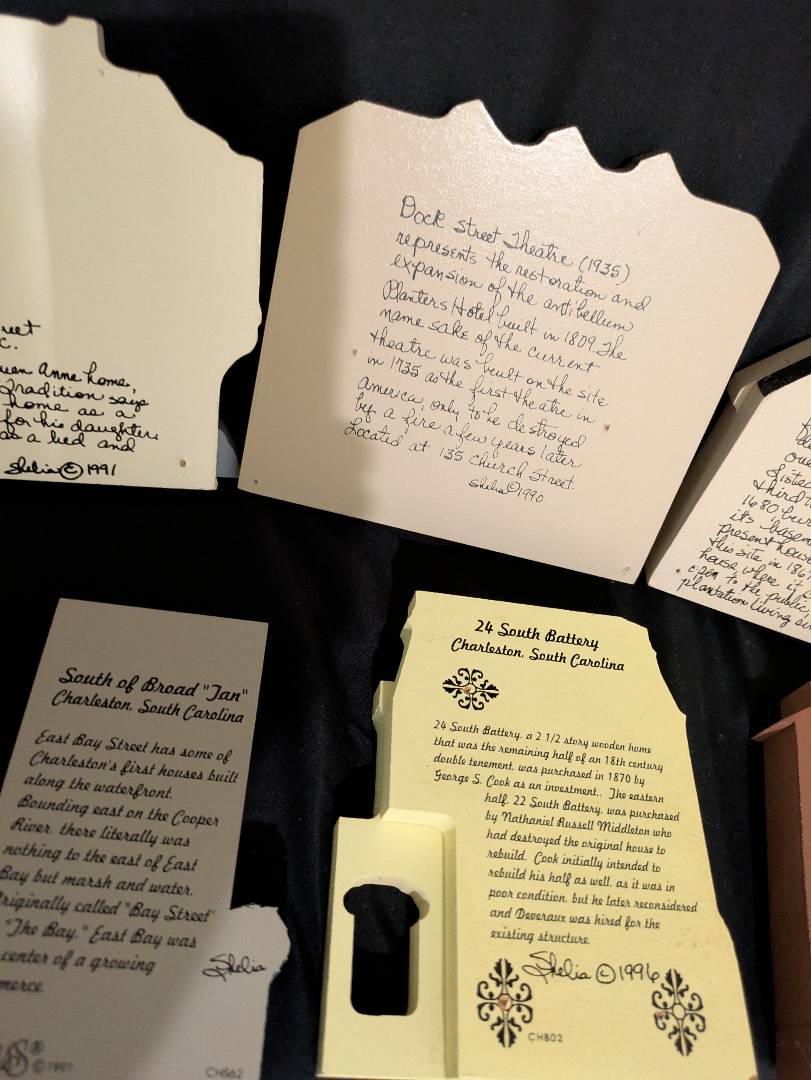 C.
Anne home,
Tradition says
home as a
for his daughter.
as a bed and
Shelia © 1991
Dock Street Theatre (1935)
represents the restoration and
expansion of the antibellum
Planters Hotel built in 1809. The
name sake of the current
theatre was built on the site
in 1735 as the first theatre in
America, only to be destroyed
by a fire a few years later
Located at 135 Church Street.
Shelia © 1990
third
1680
its
present house
this site in 186
house where it
open to the public,
plantation living
South of Broad "Tan"
Charleston, South Carolina
East Bay Street has some of
Charleston's first houses built
along the waterfront.
Bounding east on the Cooper
River, there literally was
nothing to the east of East
Bay but marsh and water.
Originally called "Bay Street"
"The Bay," East Bay was
center of a growing
Shelia
® © 1991
CHS62
24 South Battery
Charleston, South Carolina
24 South Battery, a 2 1/2 story wooden home
that was the remaining half of an 18th century
double tenement, was purchased in 1870 by
George S. Cook as an investment.. The eastern
half, 22 South Battery, was purchased
by Nathaniel Russell Middleton who
had destroyed the original house to
rebuild. Cook initially intended to
rebuild his half as well, as it was in
poor condition, but he later reconsidered
and Deveraux was hired for the
existing structure.
Shelia © 1996
CHB02